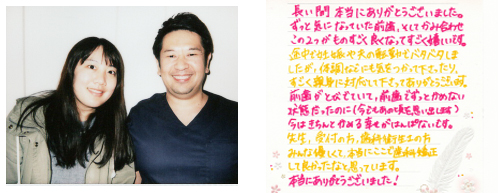 長い間 本当にありがとうございました。
ずっと気になっていた前歯、そしてかみ合わせ
この2つがものすごく良くなってすごく嬉しいです。
途中で妊娠や夫の転勤でバタバタしま
したが、体調などにも気をつかって下さったり、
すごく親身に対応して下さってありがとうございます。
前歯がとなでていて、前歯でずっとかめない
状態だったのに(今でもあの頃を思い出します)
今はきちんとかめる幸せがはんぱないです。
先生、受付の方、歯科衛生士の方
みんな優しくて、本当にここで歯科矯正
して良かったなと思っています。
本当にありがとうございました!